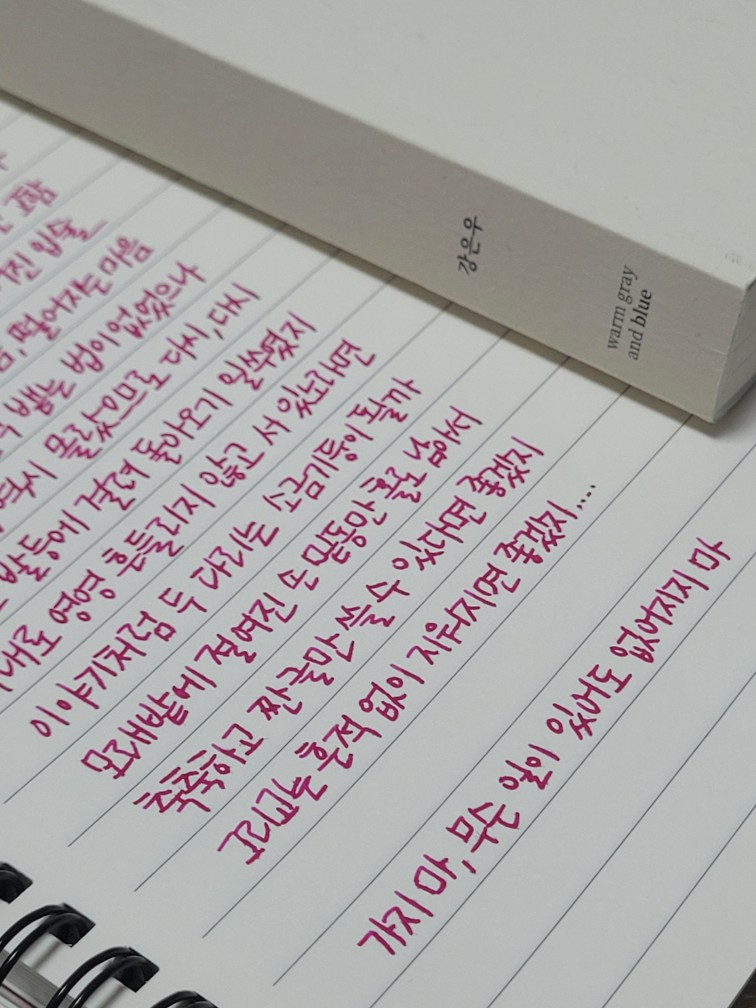 강은우
warm gray
and blue
진 입술
떨어지는 마음
뺏는 법이 없었으나
몰랐으므로 다시, 다시
발등에 걸려 돌아오기 일쑤였지
대로 영영 흔들리지 않고 서 있노라면
이야기처럼 두 다리는 소금기둥이 될까
모래밭에 절여진 손 맘동안 홀로 남아서
축축하고 짠 글만 쓸 수 있다면 좋겠지
그리고는 흔적 없이 지워지면 좋겠지....
가지 마, 무슨 일이 있어도 없어지지 마